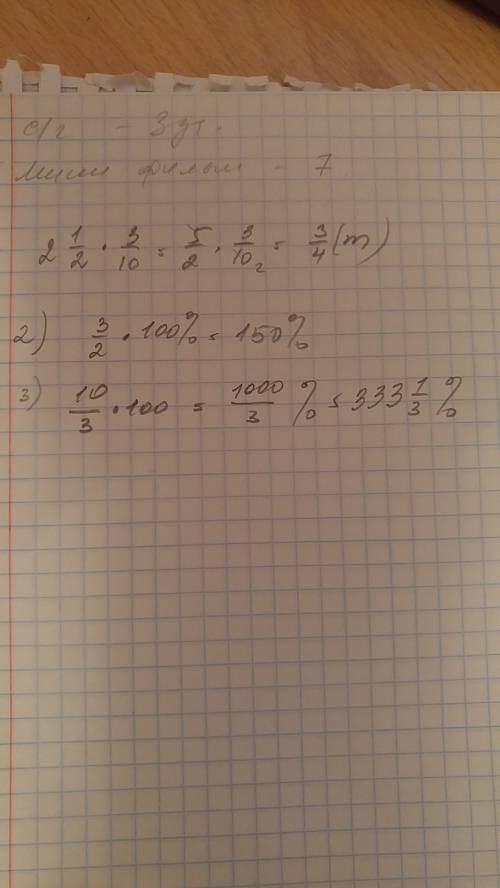 с/г - 3 ут.
фильм - 7
2 1/2 · 3/10 = 5/2 · 3/10 2 = 3/4 (т)
2) 3/2 · 100% = 150%
3) 10/3 · 100 = 1000/3 % = 333 1/3 %